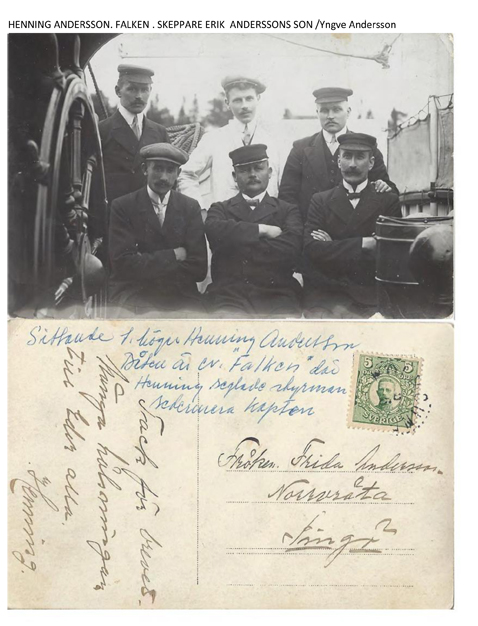 HENNING ANDERSSON. FALKEN . SKEPPARE ERIK  ANDERSSONS SON /Yngve Andersson
Sittande t. höger Henning Andersson
Båten är ev. "Falken" där
Henning seglade styrman
sedermera kapten
Tack för brevet.
Många hälsningar
till Eder alla.
Henning.
5 5
SVERIGE
Fröken. Frida Andersson.
Norrvreta
Singö